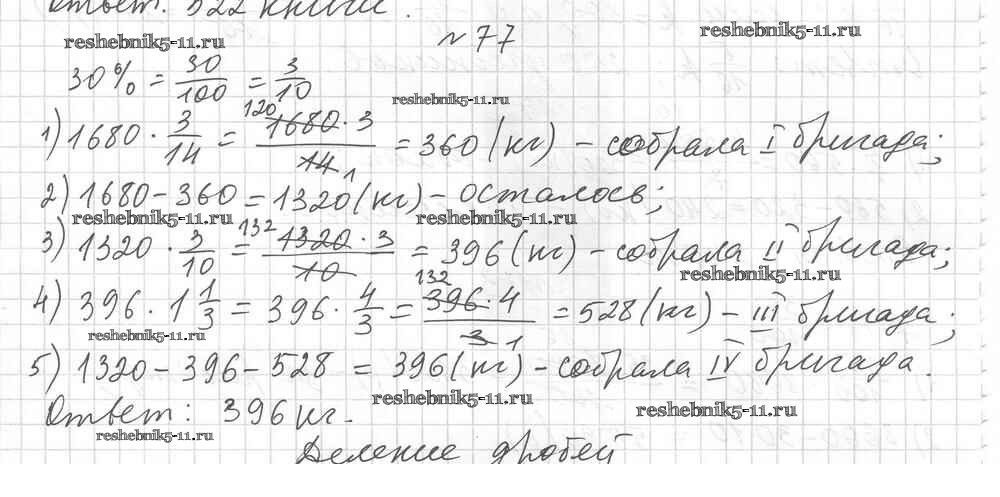 Ответ: 522 книги.
reshebnik5-11.ru
№77
reshebnik5-11.ru
30% = 30/100 = 3/10
reshebnik5-11.ru
1) 1680 · 3/14 = 120 1680 · 3 / 14 1 = 360 (кг) – собрала I бригада;
2) 1680 – 360 = 1320 (кг) – осталось;
reshebnik5-11.ru
reshebnik5-11.ru
3) 1320 · 3/10 = 132 1320 · 3 / 10 = 396 (кг) – собрала II бригада;
reshebnik5-11.ru
4) 396 · 1 1/3 = 396 · 4/3 = 132 396 · 4 / 3 1 = 528 (кг) – III бригада;
reshebnik5-11.ru
5) 1320 – 396 – 528 = 396 (кг) – собрала IV бригада.
reshebnik5-11.ru
Ответ: 396 кг.
reshebnik5-11.ru
reshebnik5-11.ru
Деление дробей